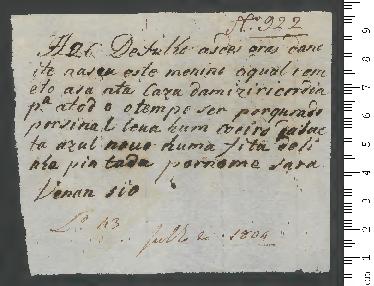 Nº 922
A 26 De Julho as des oras da noi
ite naseu este menino o qual rem
eto a sa nta Caza da miziricordia
pª a tod o o tempo ser porqurado
por sinal leva hum coeiro
ta azul novo huma fita
pin tada por nome sara
Venan sio
Lº 43
Julho 1804